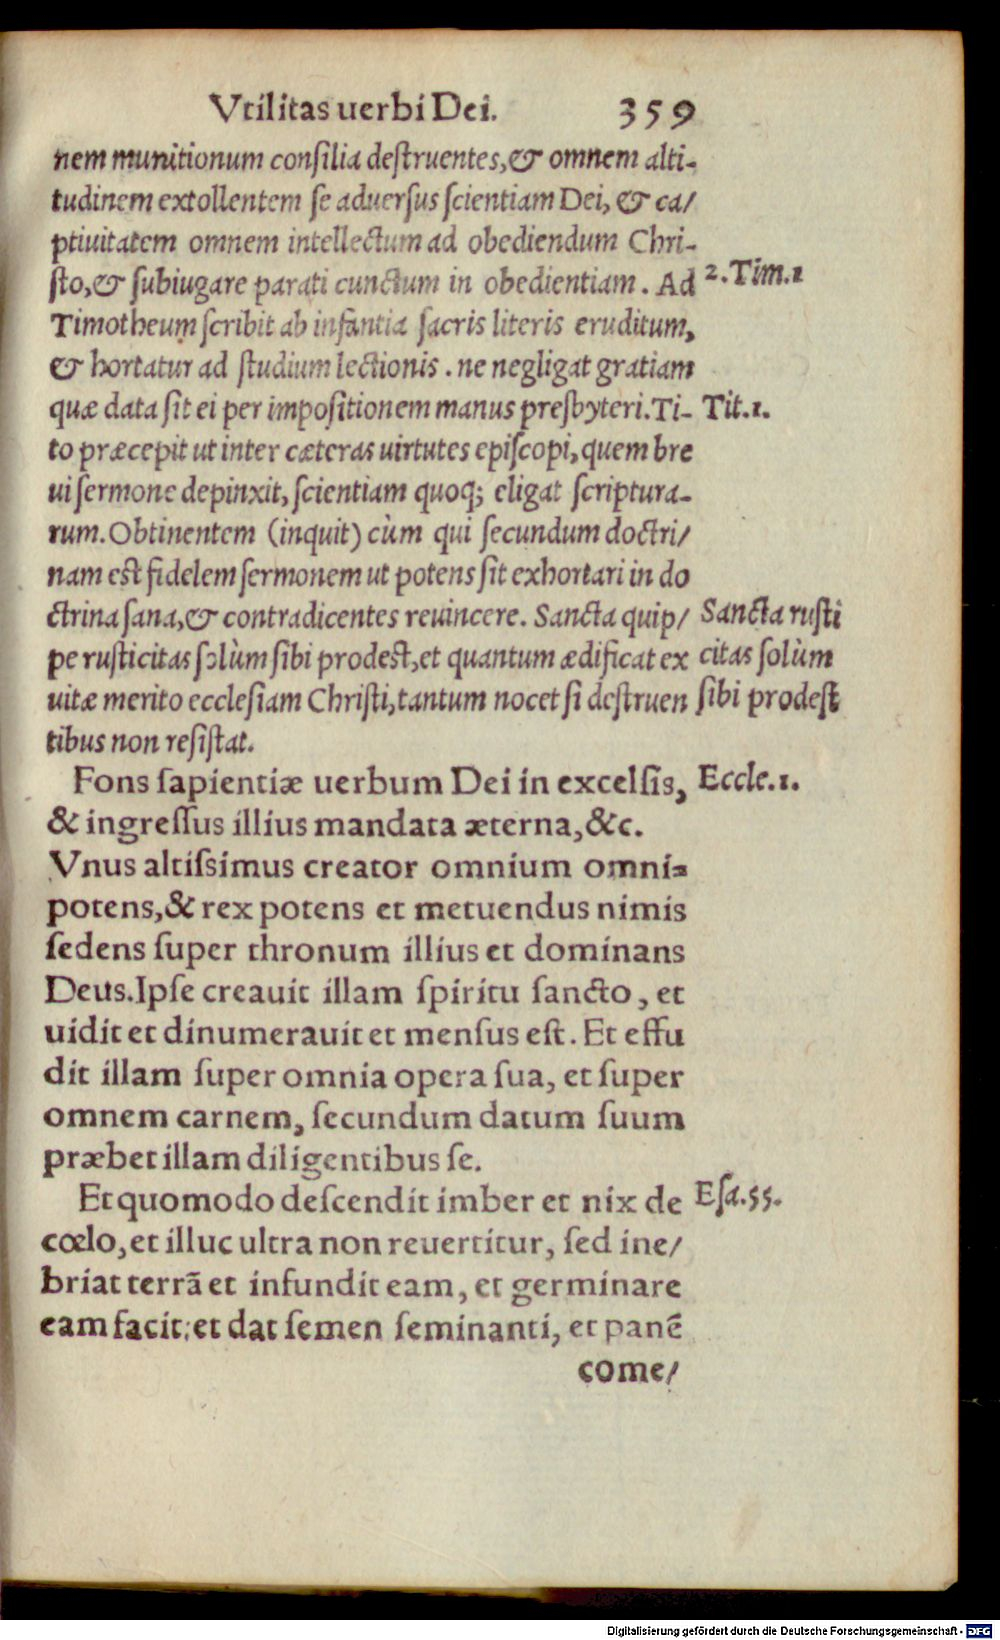 Vtilitas uerbi Dei. 359
nem munitionum conſilia deſtruentes, & omnem alti-
tudinem extollentem ſe aduerſus ſcientiam Dei, & ca/
ptiuitatem omnem intellectum ad obediendum Chri-
ſto, & ſubiugare parati cunctum in obedientiam. Ad
2. Tim. 1
Timotheum ſcribit ab infantia ſacris literis eruditum,
& hortatur ad ſtudium lectionis. ne negligat gratiam
quæ data ſit ei per impoſitionem manus preſbyteri. Ti-
Tit. 1.
to præcepit ut inter cæteras uirtutes epiſcopi, quem bre
ui ſermone depinxit, ſcientiam quoq; eligat ſcriptura-
rum. Obtinentem (inquit) cùm qui ſecundum doctri/
nam eſt fidelem ſermonem ut potens ſit exhortari in do
ctrina ſana, & contradicentes reuincere. Sancta quip/
Sancta ruſti
pe ruſticitas ſolùm ſibi prodeſt, et quantum ædificat ex
citas ſolùm
uitæ merito eccleſiam Chriſti, tantum nocet ſi deſtruen
ſibi prodeſt
tibus non reſiſtat.
Fons ſapientiæ uerbum Dei in excelſis,
Eccle. 1.
& ingreſſus illius mandata æterna, &c.
Vnus altiſsimus creator omnium omni=
potens, & rex potens et metuendus nimis
ſedens ſuper thronum illius et dominans
Deus. Ipſe creauit illam ſpiritu ſancto, et
uidit et dinumerauit et menſus eſt. Et effu
dit illam ſuper omnia opera ſua, et ſuper
omnem carnem, ſecundum datum ſuum
præbet illam diligentibus ſe.
Et quomodo deſcendit imber et nix de
Eſa. 55.
cœlo, et illuc ultra non reuertitur, ſed ine/
briat terrã et infundit eam, et germinare
eam facit: et dat ſemen ſeminanti, et panẽ
come/
Digitalisierung gefördert durch die Deutsche Forschungsgemeinschaft - DFG